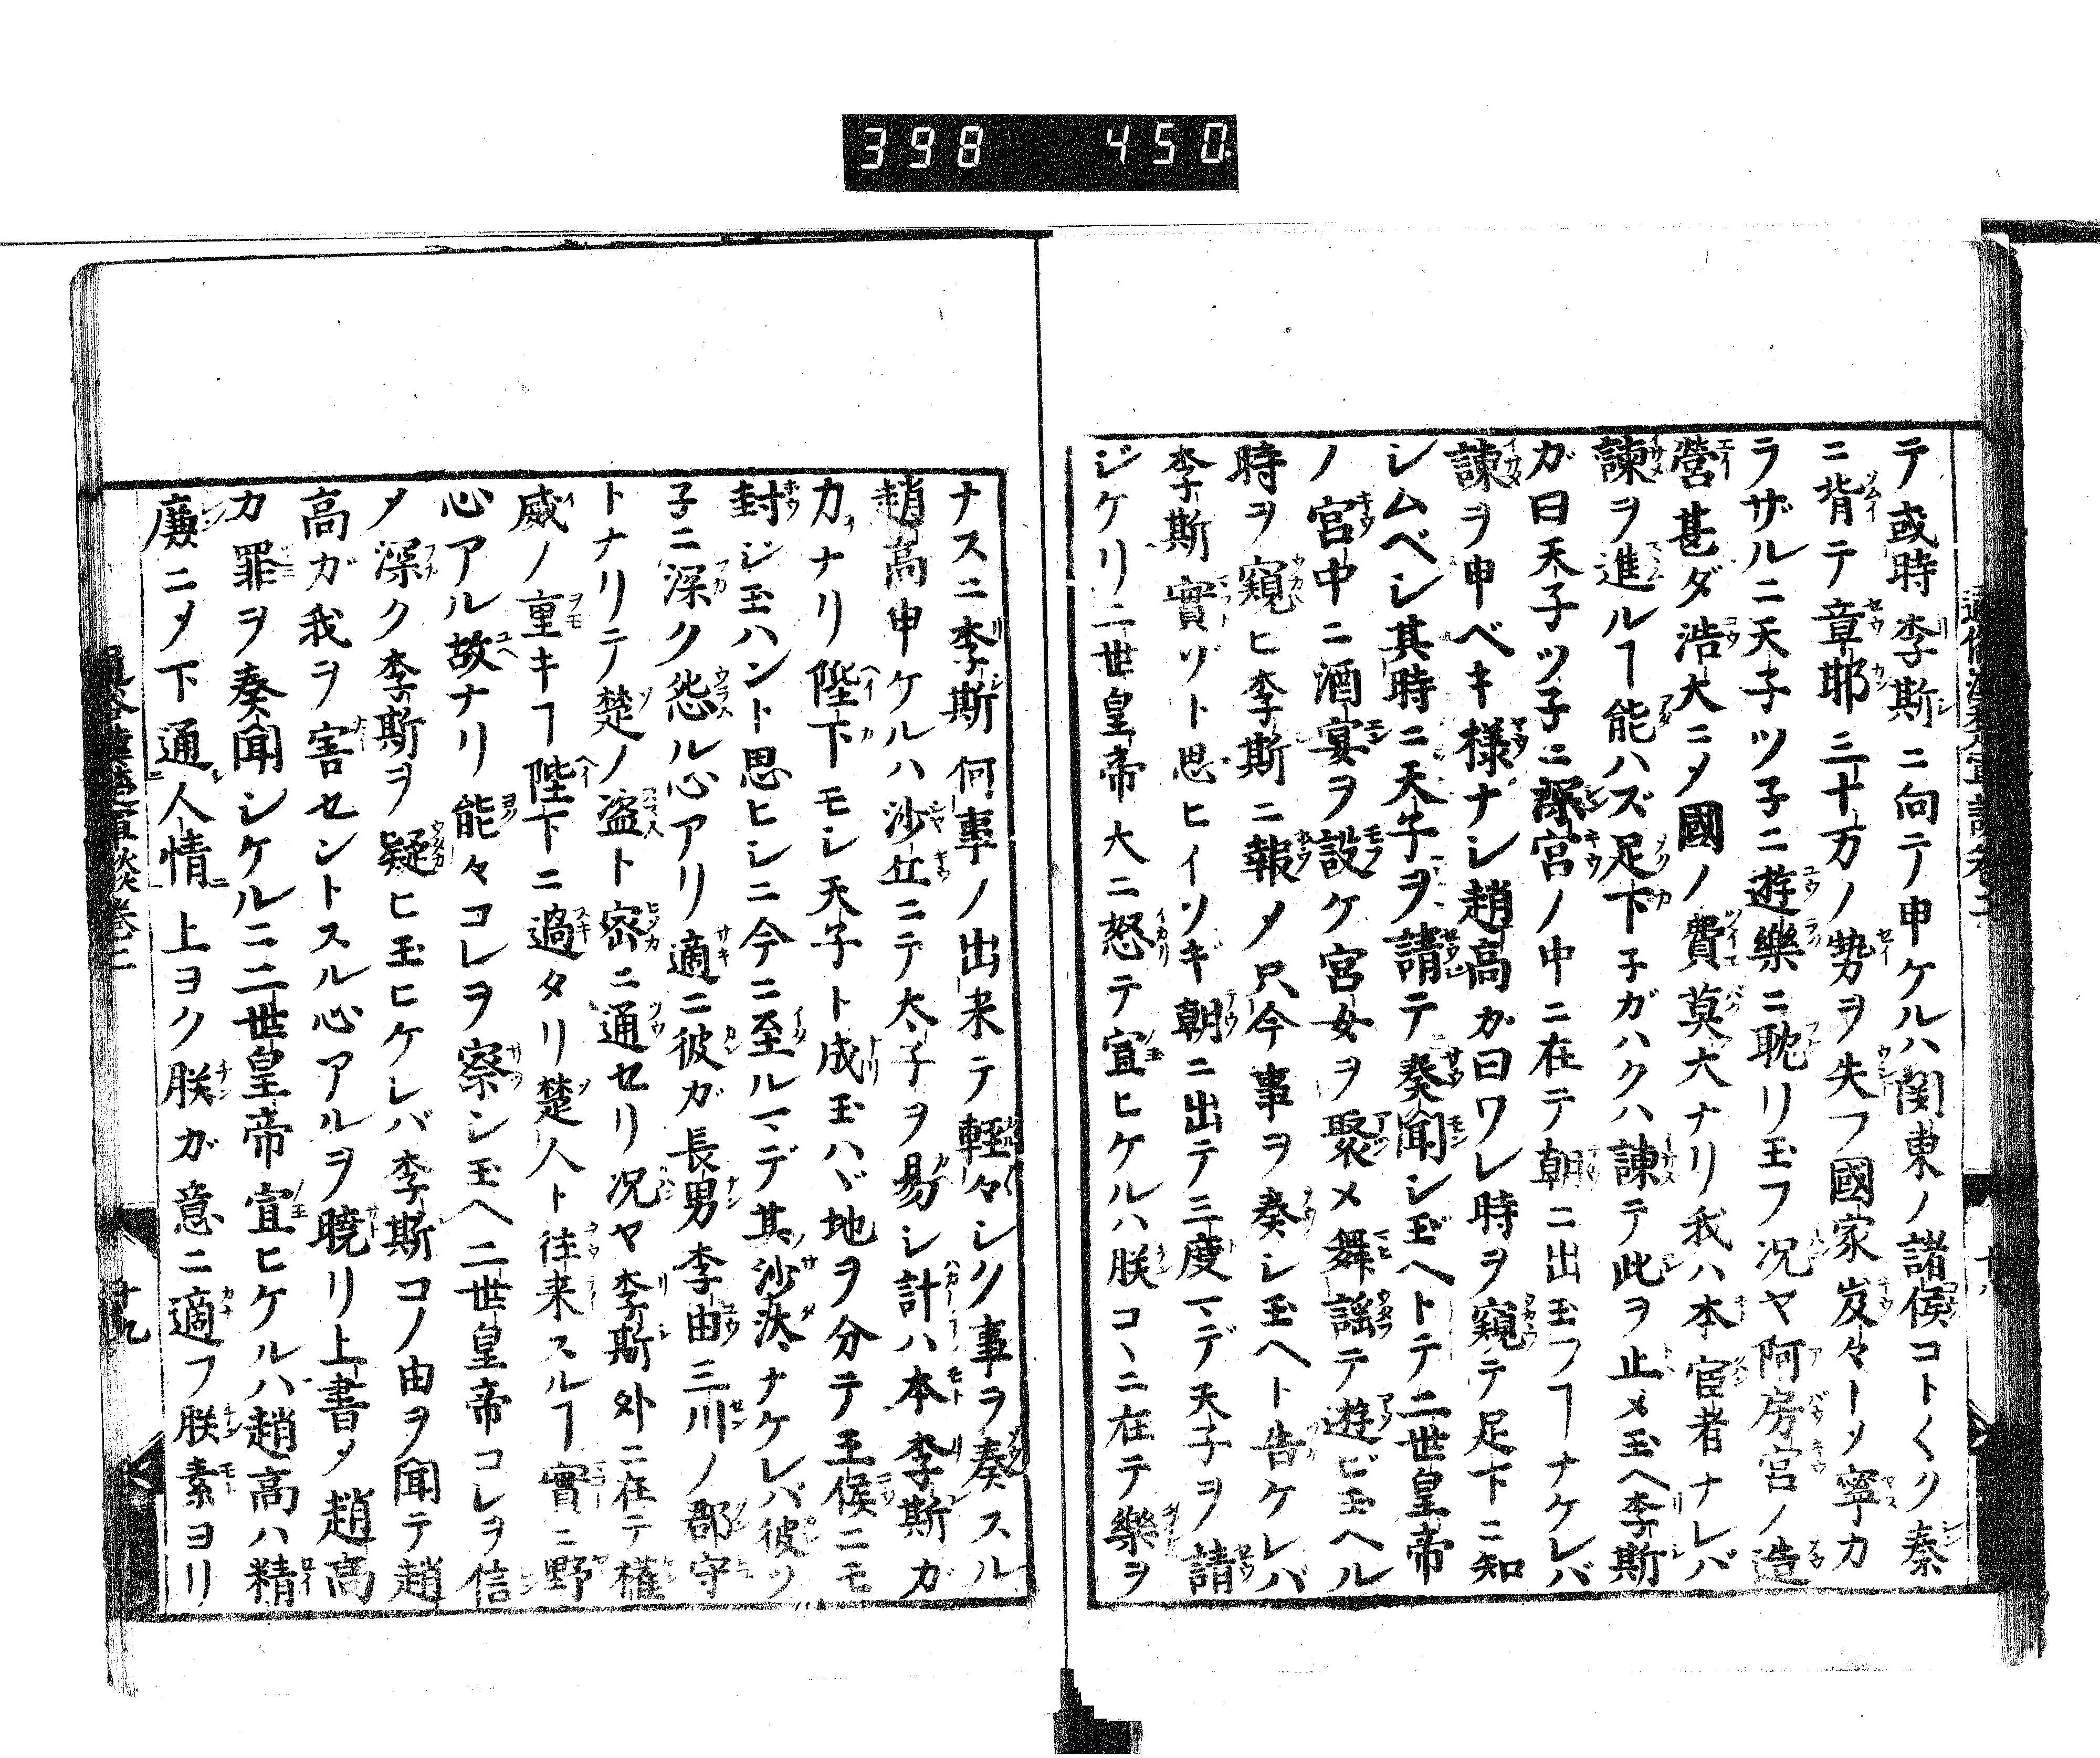 398 450
テ或時李斯ニ向テ申ケルハ関東ノ諸侯コト〱ク秦
ニ背テ章耶三十万ノ勢ヲ失フ國家岌々トソ寧カ
ラザルニ天子ツ子ニ遊樂ニ耽リ玉フ况ヤ阿房宮ノ造
營甚ダ浩大ニメ國ノ費莫大ナリ我ハ本宦者ナレバ
諫ヲ進ルヿ能ハズ足下子ガハクハ諫テ此ヲ止メ玉ヘ李斯
ガ曰天子ツ子ニ深宮ノ中ニ在テ朝ニ出玉フヿナケレバ
諫ヲ申ベキ様ナシ趙高カ曰ワレ時ヲ窺テ足下ニ知
シムベシ其時ニ天子ヲ請テ奏聞シ玉ヘトテ二世皇帝
ノ宮中ニ酒宴ヲ設ケ宮女ヲ聚メ舞謡テ遊ビ玉ヘル
時ヲ窺ヒ李斯ニ報メ只今事ヲ奏シ玉ヘト告ケレバ
李斯實ゾト思ヒイソギ朝ニ出テ三度マデ天子ヲ請
ジケリ二世皇帝大ニ怒テ宣ヒケルハ朕コヽニ在テ樂ヲ
ナスニ李斯何事ノ出来テ軽々シク事ヲ奏スル
趙高申ケルハ沙丘ニテ太子ヲ易シ計ハ本李斯カ
力ナリ陛下モシ天子ト成玉ハヾ地ヲ分テ王侯ニモ
封ジ玉ハント思ヒシニ今ニ至ルマデ其沙汰ナケレバ彼ツ
子ニ深ク怨ル心アリ適ニ彼ガ長男李由三川ノ郡守
トナリテ楚ノ盗ト密ニ通セリ况ヤ李斯外ニ在テ權
威ノ重キヿ陛下ニ過タリ楚人ト往来スルヿ實ニ野
心アル故ナリ能々コレヲ察シ玉ヘ二世皇帝コレヲ信
メ深ク李斯ヲ疑ヒ玉ヒケレバ李斯コノ由ヲ聞テ趙
高ガ我ヲ害セントスル心アルヲ曉リ上書メ趙高
カ罪ヲ奏聞シケルニ二世皇帝宣ヒケルハ趙高ハ精
廉ニメ下通人情上ヨク朕ガ意ニ適フ朕素ヨリ